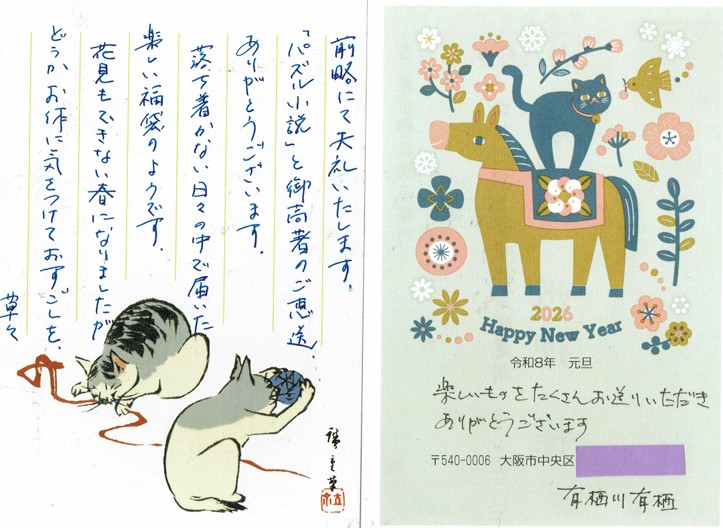 前略にて失礼いたします。
「パズル小説」と御高著のご恵送、
ありがとうございます。
落ち着かない日々の中で届いた
楽しい福袋のようです。
花見もできない春になりましたが
どうかお体に気をつけておすごしを。
草々
2026
Happy New Year
令和8年 元旦
楽しいものをたくさんお送りいただき
ありがとうございます
〒540-0006 大阪市中央区
有栖川有栖